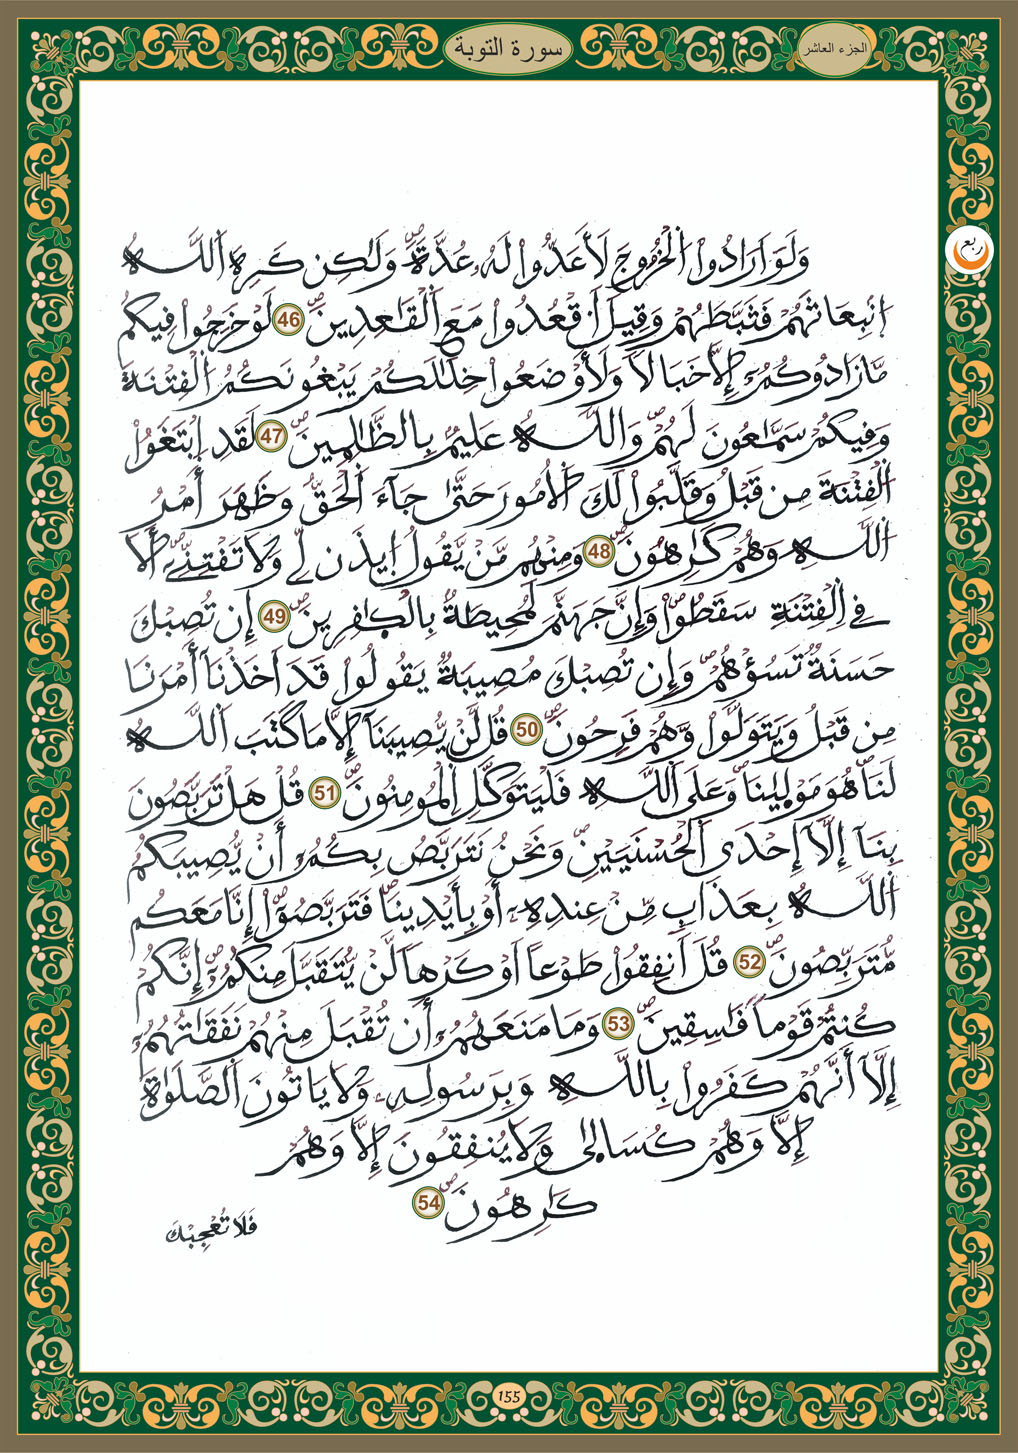 الجزء العاشر
سورة التوبة
ربع
وَلَوَ اَرَادُواْ اُلْخُرُوجَ لَأَعَدُّواْ لَهُۥ عُدَّةٗ وَلَٰكِن كَرِهَ اَللَّهُ
اُنۢبِعَاثَهُمْ فَثَبَّطَهُمْ وَقِيلَ اَ۟قْعُدُواْ مَعَ اَلْقَٰعِدِينَ 46 لَوْ خَرَجُواْ فِيكُم
مَّا زَادُوكُمُۥٓ إِلَّا خَبَالٗا وَلَأَوْضَعُواْ خِلَٰلَكُمْ يَبْغُونَكُمُ اُلْفِتْنَةَ
وَفِيكُمْ سَمَّٰعُونَ لَهُمْ وَاللَّهُ عَلِيمُۢ بِالظَّٰلِمِينَ 47 لَقَدِ اِبْتَغَوُاْ
اُلْفِتْنَةَ مِن قَبْلُ وَقَلَّبُواْ لَكَ اَلْأُمُورَ حَتَّىٰ جَآءَ اَلْحَقُّ وَظَهَرَ أَمْرُ
اُللَّهِ وَهُمْ كَٰرِهُونَ 48 وَمِنْهُم مَّنْ يَّقُولُ اُ۪يذَن لِّے وَلَا تَفْتِنِّےٓ أَلَا
فِے اِلْفِتْنَةِ سَقَطُواْ وَإِنَّ جَهَنَّمَ لَمُحِيطَةُۢ بِالْكٰ۪فِرِينَ 49 إِن تُصِبْكَ
حَسَنَةٞ تَسُؤْهُمْ وَإِن تُصِبْكَ مُصِيبَةٞ يَقُولُواْ قَدَ اَخَذْنَآ أَمْرَنَا
مِن قَبْلُ وَيَتَوَلَّواْ وَّهُمْ فَرِحُونَ 50 قُل لَّنْ يُّصِيبَنَآ إِلَّا مَا كَتَبَ اَللَّهُ
لَنَا هُوَ مَوْل۪يٰنَا وَعَلَى اَللَّهِ فَلْيَتَوَكَّلِ اِلْمُومِنُونَ 51 قُلْ هَلْ تَرَبَّصُونَ
بِنَآ إِلَّآ إِحْدَى اَلْحُسْنَيَيْنِ وَنَحْنُ نَتَرَبَّصُ بِكُمُۥٓ أَنْ يُّصِيبَكُمُ
اُللَّهُ بِعَذَابٖ مِّنْ عِندِهِۦٓ أَوْ بِأَيْدِينَا فَتَرَبَّصُوٓاْ إِنَّا مَعَكُم
مُّتَرَبِّصُونَ 52 قُلَ اَنفِقُواْ طَوْعاً اَوْ كَرْهاٗ لَّنْ يُّتَقَبَّلَ مِنكُمُۥٓ إِنَّكُمْ
كُنتُمْ قَوْماٗ فَٰسِقِينَ 53 وَمَا مَنَعَهُمُۥٓ أَن تُقْبَلَ مِنْهُمْ نَفَقَٰتُهُمُۥٓ
إِلَّآ أَنَّهُمْ كَفَرُواْ بِاللَّهِ وَبِرَسُولِهِۦ وَلَا يَاتُونَ اَلصَّلَوٰةَ
إِلَّا وَهُمْ كُسَال۪يٰ وَلَا يُنفِقُونَ إِلَّا وَهُمْ
كَٰرِهُونَ 54
فَلَا تُعْجِبْكَ
155